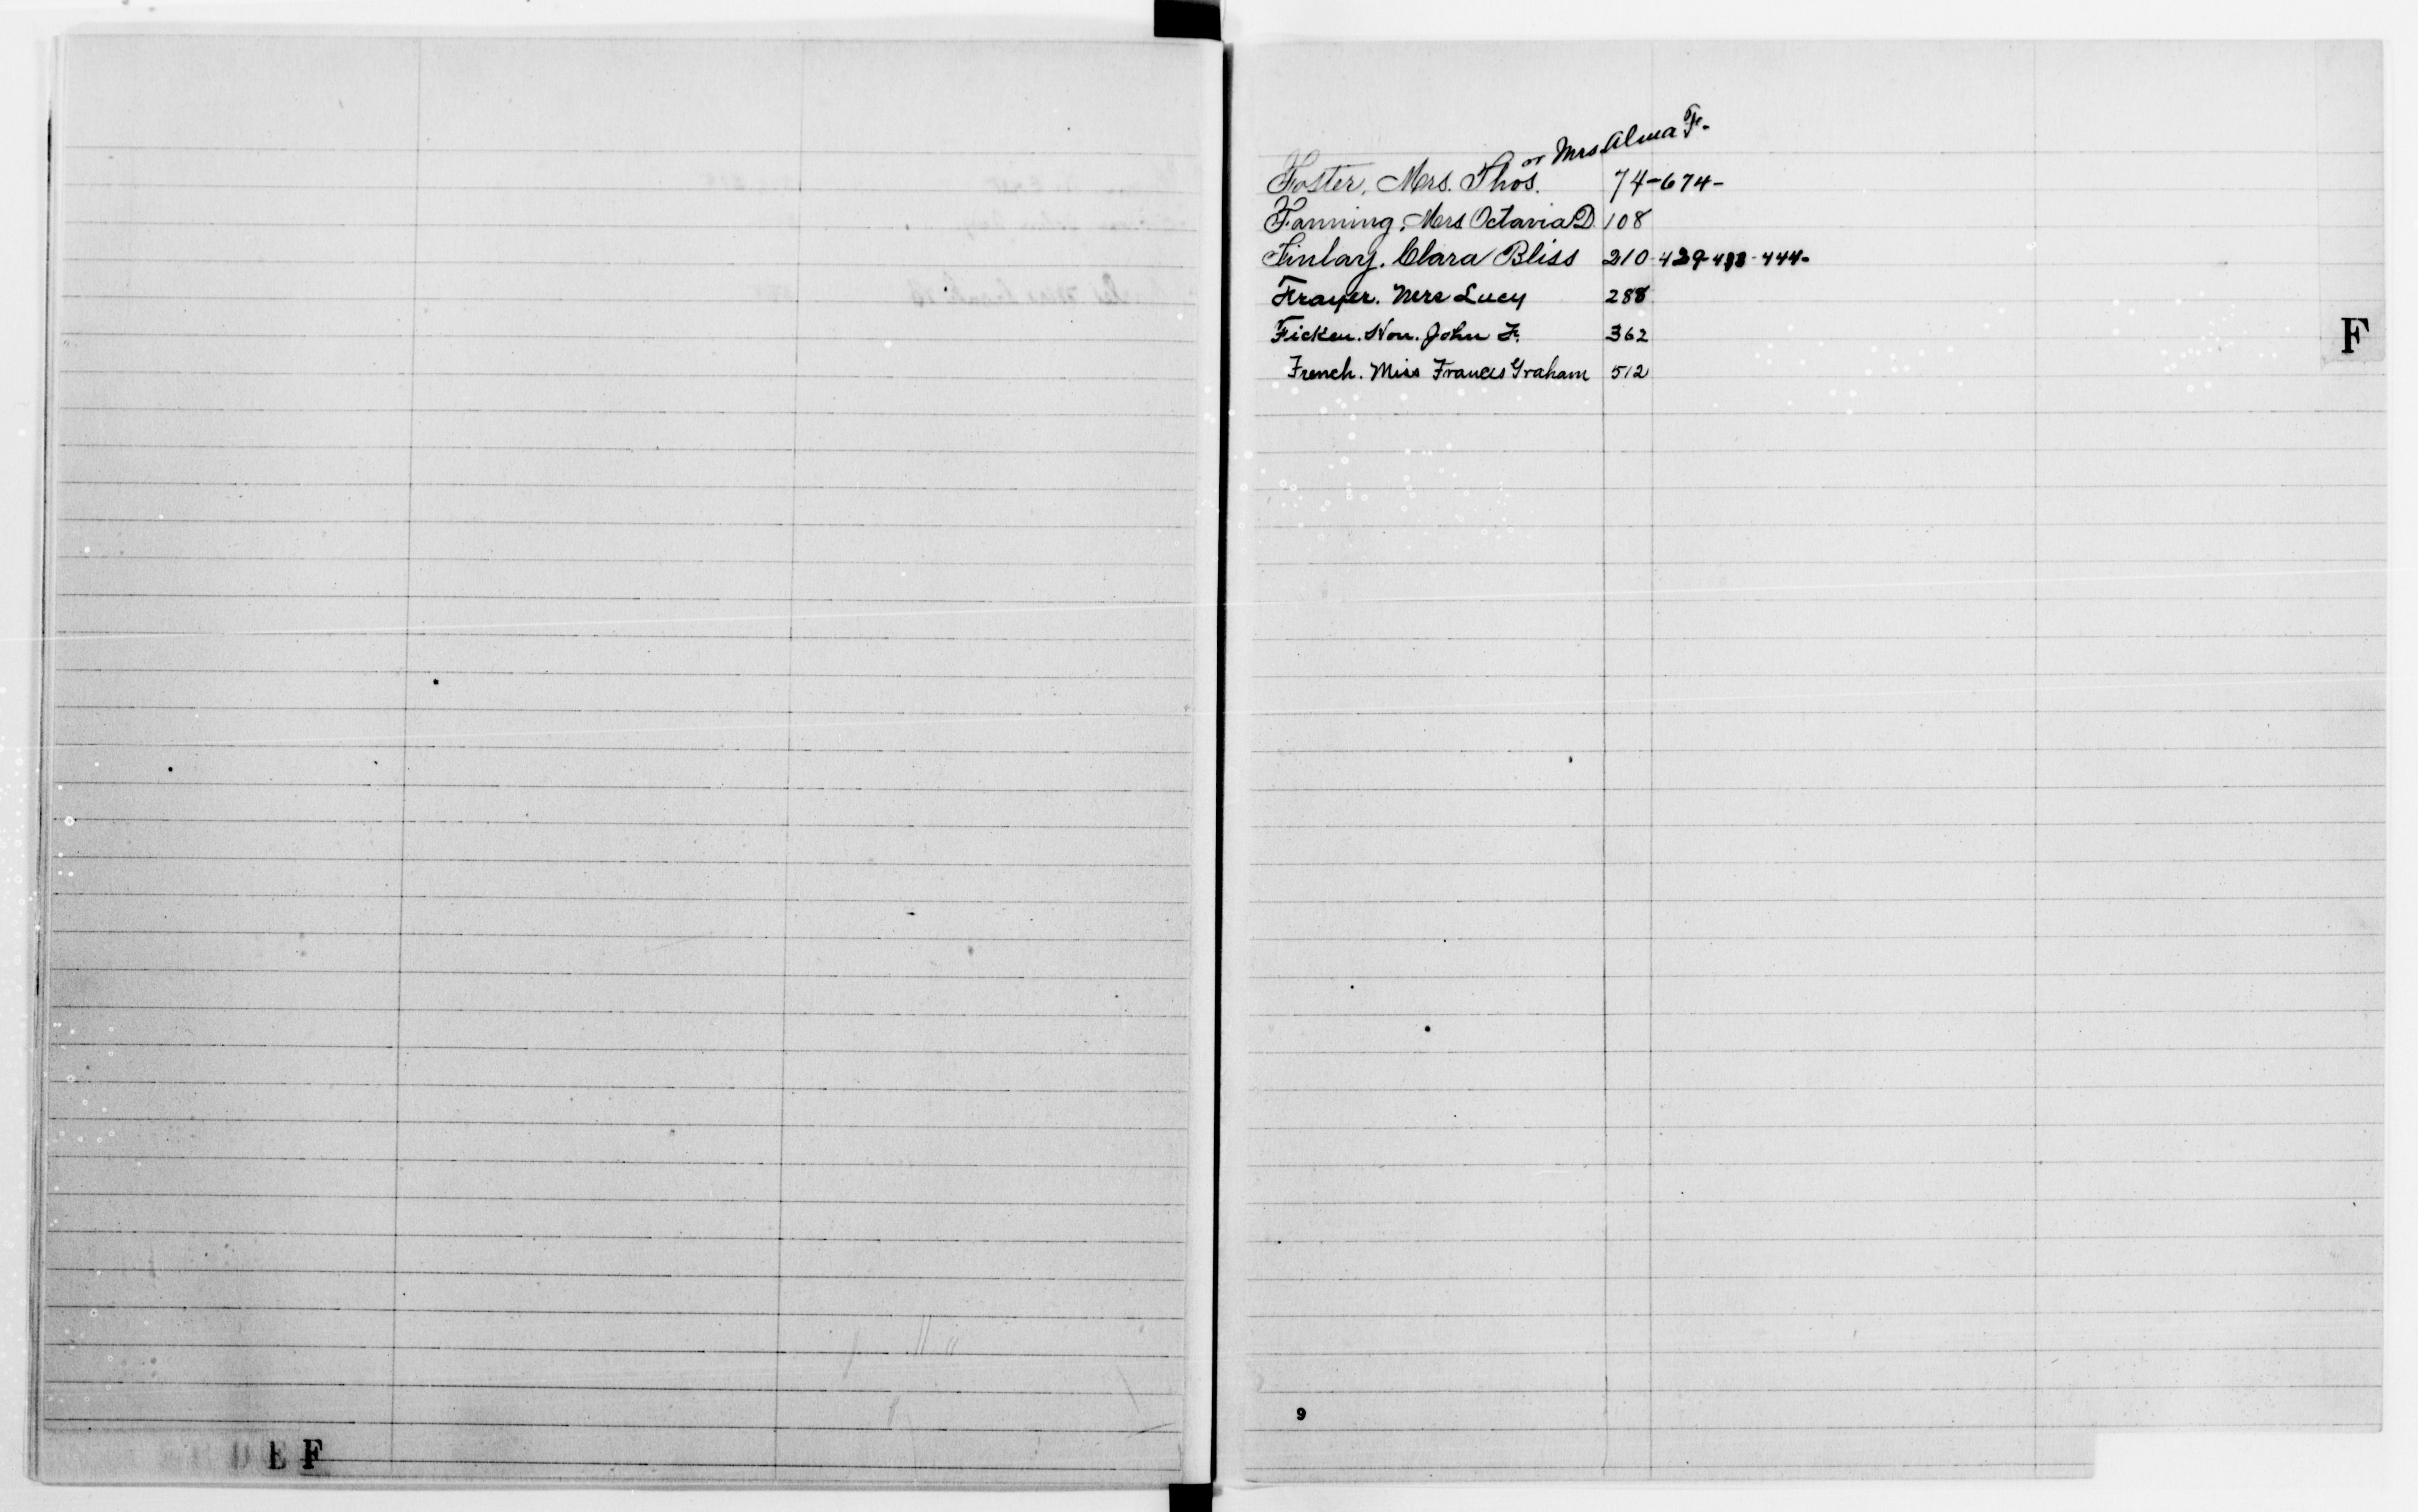 or Mrs. Alma F-
Foster, Mrs. Thos. 74-674-
Fanning, Mrs Octavia D. 108
Finlay. Clara Bliss 210-429-444-
Frayer. Mrs Lucy 288
Ficken. Hon. John F. 362
F
French. Miss Frances Graham 512
9
E F